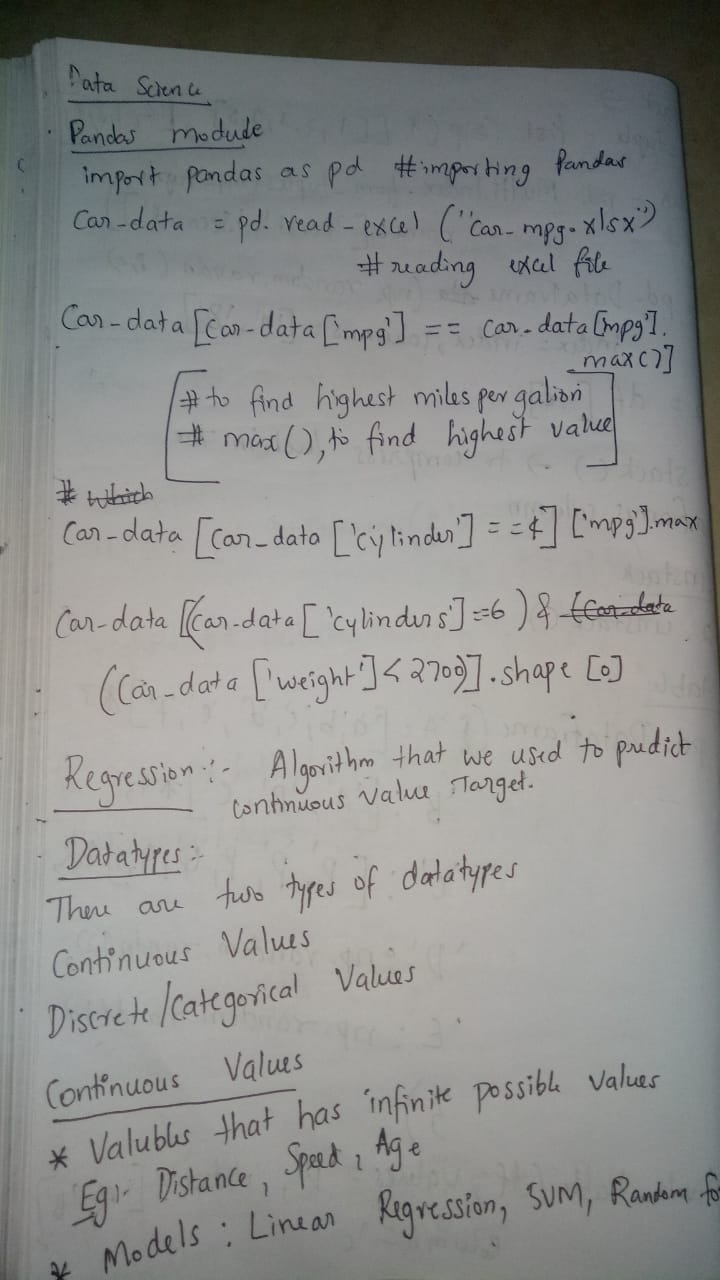 Data Science
Pandas module
import pandas as pd #importing Pandas
Car-data = pd. read-excel ("car-mpg.xlsx")
# reading excel file
Car-data [car-data['mpg'] == car-data[mpg'].
max()]
# to find highest miles per galion
# max(), to find highest value
# which
Car-data [car_data ['cylinder'] ==4] ['mpg'].max
Car-data [(car-data ['cylinders']==6) & (Car-data
((car_data ['weight']<2700)].shape [0]
Regression :- Algorithm that we used to predict
continuous value Target.
Datatypes :-
There are two types of datatypes
Continuous Values
Discrete/Categorical Values
Continuous Values
* Valubles that has infinite possible values
Eg:- Distance, Speed, Age
* Models : Linear Regression, SVM, Random fo